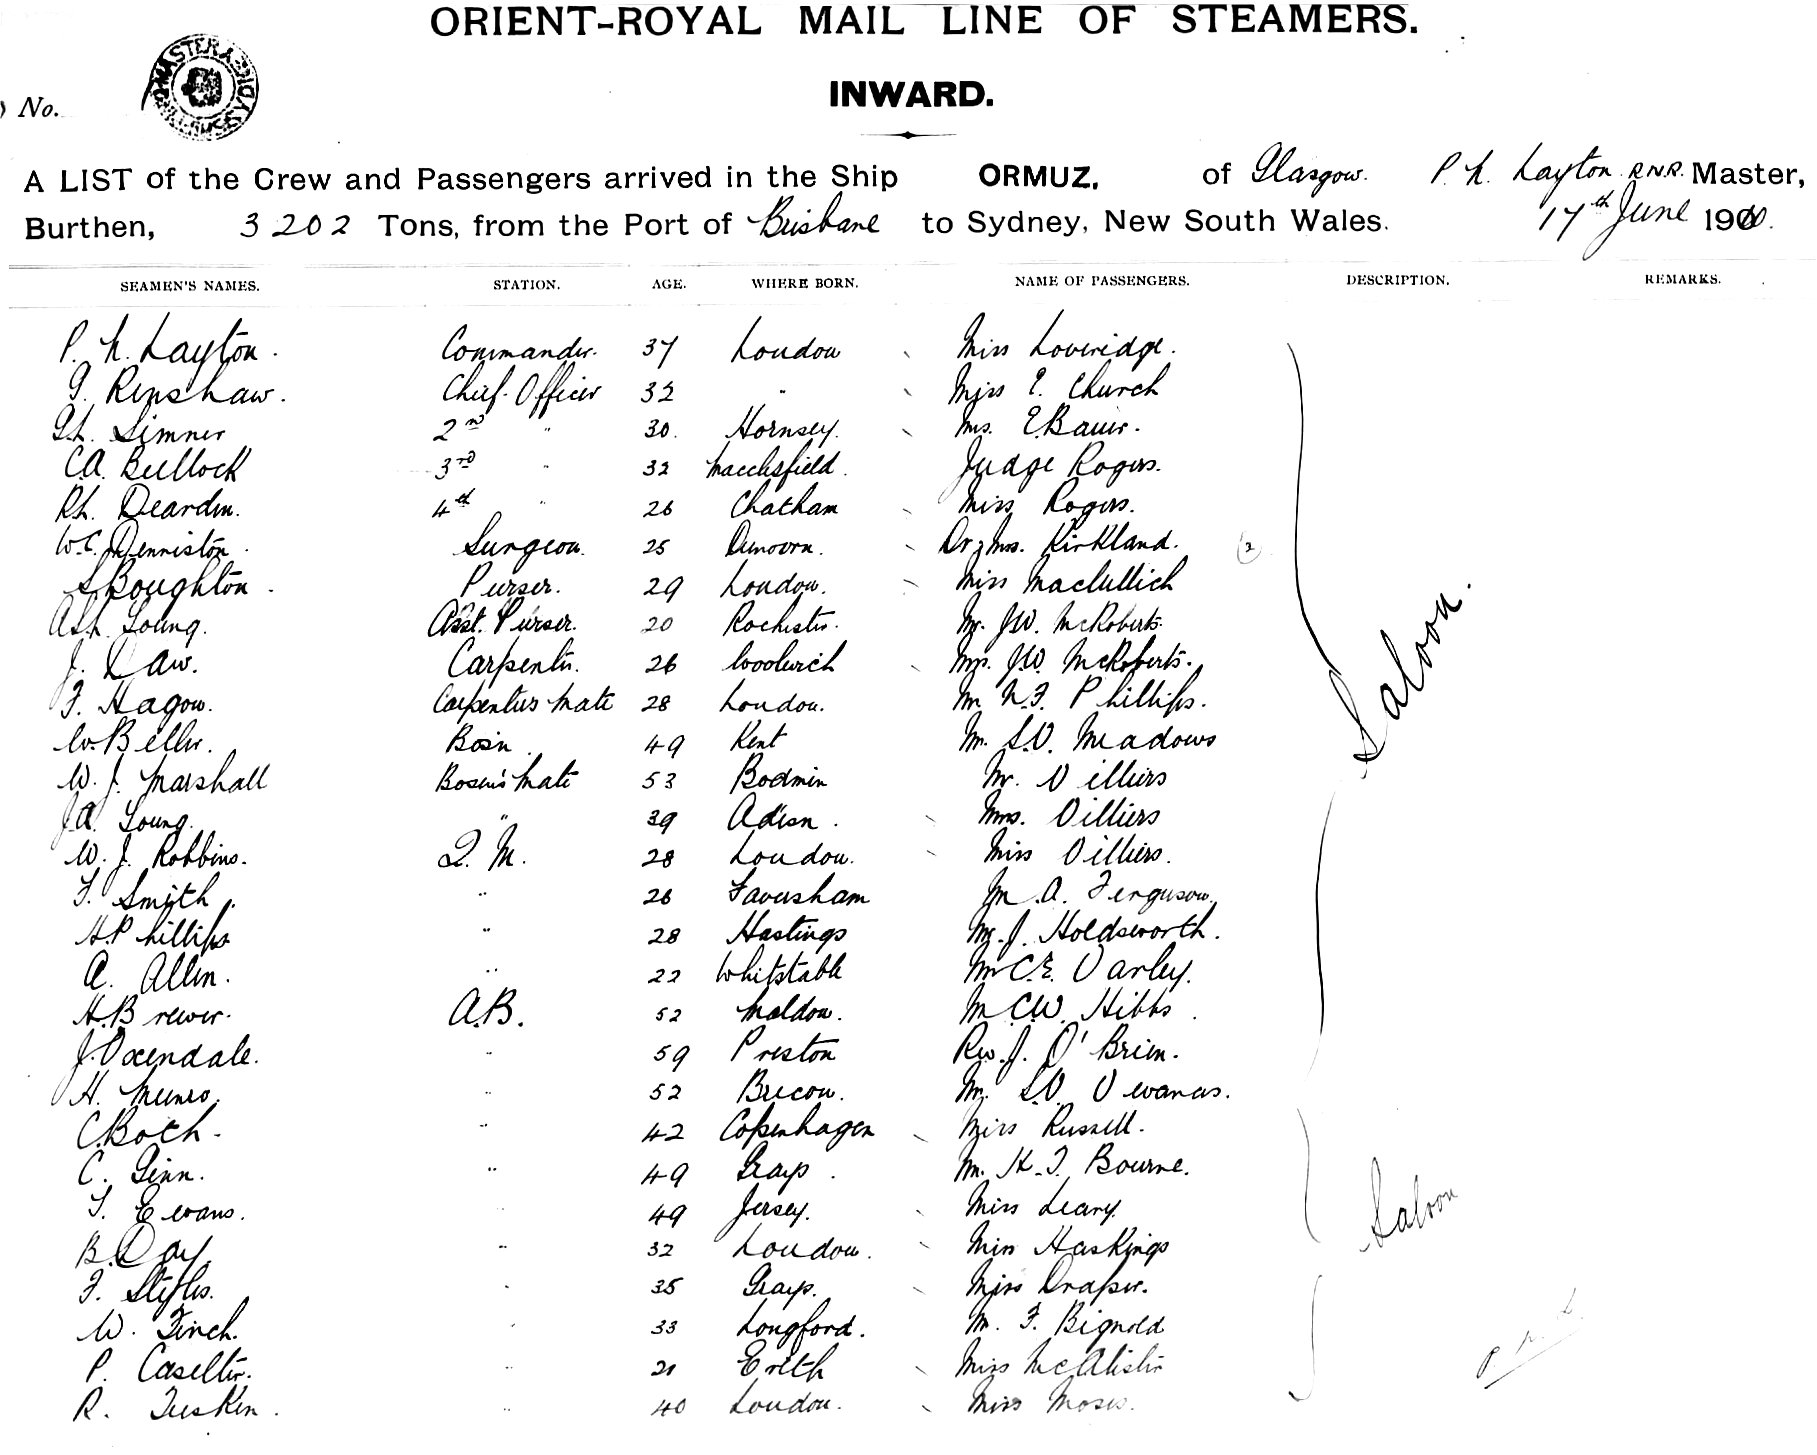 ORIENT-ROYAL MAIL LINE OF STEAMERS.
INWARD.
No.
A LIST of the Crew and Passengers arrived in the Ship ORMUZ, of Glasgow. P. N. Layton R.N.R. Master,
Burthen, 3202 Tons, from the Port of Brisbane to Sydney, New South Wales. 17th June 1900.
SEAMEN'S NAMES. STATION. AGE. WHERE BORN. NAME OF PASSENGERS. DESCRIPTION. REMARKS.
P. N. Layton. Commander. 37 London Miss Loveridge.
G. Renshaw. Chief Officer 32 " Miss E. Church
Simner 2nd " 30. Hornsey. Mrs. E. Bauer.
C.A. Bullock 3rd " 32 Macclesfield. Judge Rogers.
Dearden. 4th " 26 Chatham Miss Rogers.
W.C. Denniston. Surgeon. 25 Dunoon. Dr & Mrs. Kirkland. (2)
S Boughton. Purser. 29 London. Miss MacCullich
Young. Asst. Purser. 20 Rochester. Mr. J.W. McRoberts.
J. Law. Carpenter. 26 Woolwich Mrs. J.W. McRoberts.
F. Hagow. Carpenters Mate 28 London. Mr N.F. Phillips.
W. Beller. Bosn. 49 Kent Mr. S.V. Meadows
W. J. Marshall Bosens Mate 53 Bodmin Mr. Villiers
J.A. Young. " 39 Mrs. Villiers
W. J. Robbins. Q. M. 28 London. Miss Villiers.
F. Smith. " 26 Faversham Mr A. Ferguson.
H. Phillips " 28 Hastings Mr. J. Holdsworth.
A. Allen. " 22 Whitstable Mr C.E. Varley.
H. Brewer. A.B. 52 Maldon. Mr C.W. Hibbs.
J. Oxendale. " 59 Preston Rev. J. O'Brien.
H. Munro. " 52 Brecon. Mr. S.V.
C. Boch. " 42 Copenhagen Miss Russell.
C. Ginn. " 49 Grays. Mr. H.T. Bourne.
T. Evans. 49 Jersey. Miss Leary.
B. Day. " 32 London. Miss Haskings
F. Stiples. " 35 Grays. Miss Draper.
W. Finch. " 33 Longford. Mr. F. Bignold
P. Caselter. " 21 Erith Miss McAlister
R. Tusken. " 40 London. Miss Moses.
Saloon.
Saloon